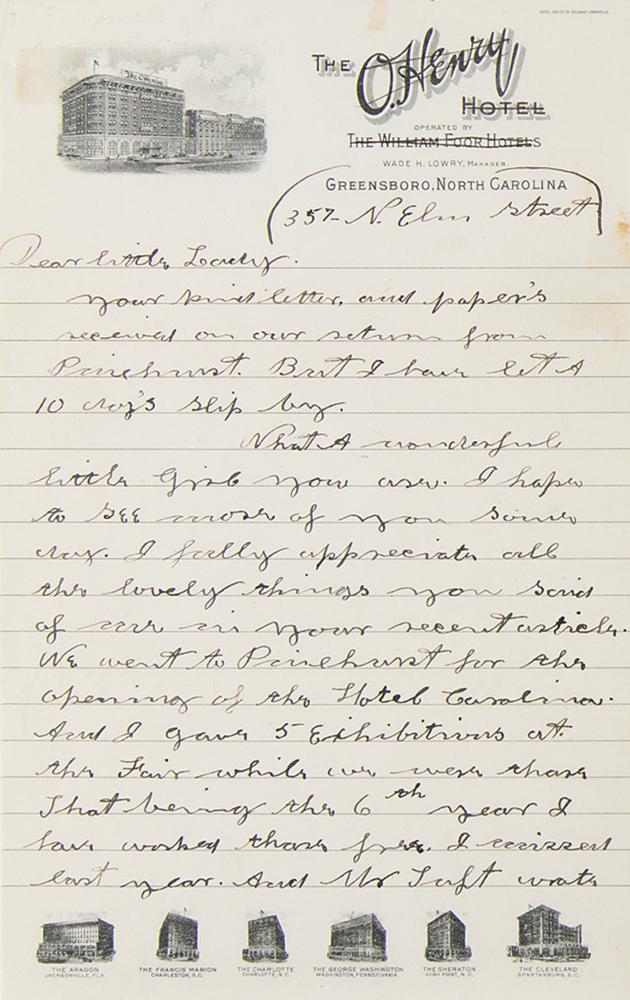 THE O. Henry
HOTEL
OPERATED BY
THE WILLIAM FOOR HOTELS
WADE H. LOWRY, MANAGER.
GREENSBORO, NORTH CAROLINA
357- N. Elm Street
Dear little Lady.
your kind letter, and paper's
received on our return from
Pinehurst. But I have let A
10 day's slip by.
What A wonderful
little Girl you are. I hope
to SEE more of you some
day. I fully appreciate all
the lovely things you said
of me in your recent article.
We went to Pinehurst for the
opening of the Hotel Carolina.
And I gave 5 Exhibitions at
the Fair while we were there
That being the 6th year I
have worked there free. I missed
last year. And Mr Taft wrote
THE O.HENRY
THE ARAGON
JACKSONVILLE, FLA.
THE FRANCIS MARION
CHARLESTON, S.C.
THE CHARLOTTE
CHARLOTTE, N.C.
THE GEORGE WASHINGTON
WASHINGTON, PENNSYLVANIA
THE SHERATON
HIGH POINT, N.C.
THE CLEVELAND
SPARTANBURG, S.C.